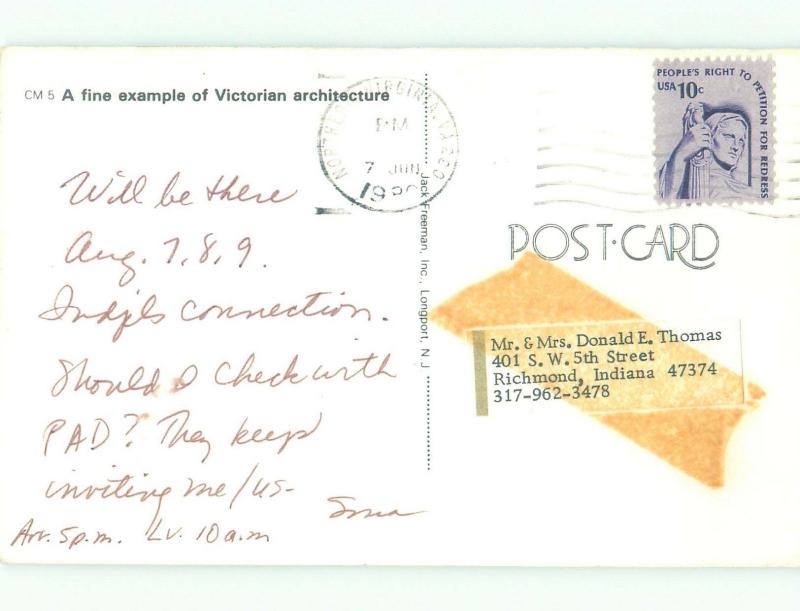 CM 5 A fine example of Victorian architecture
Will be there
Aug. 7, 8, 9.
Indpls connection.
Should I check with
PAD? They keep
inviting me/us-
Arr. 5p.m. Lv. 10 a.m
Jack Freeman, Inc., Longport, N J
VIRGINIA, VA 220
PM
7 JUN
1980
PEOPLE'S RIGHT TO PETITION FOR REDRESS
USA 10c
POST-CARD
Mr. & Mrs. Donald E. Thomas
401 S. W. 5th Street
Richmond, Indiana 47374
317-962-3478